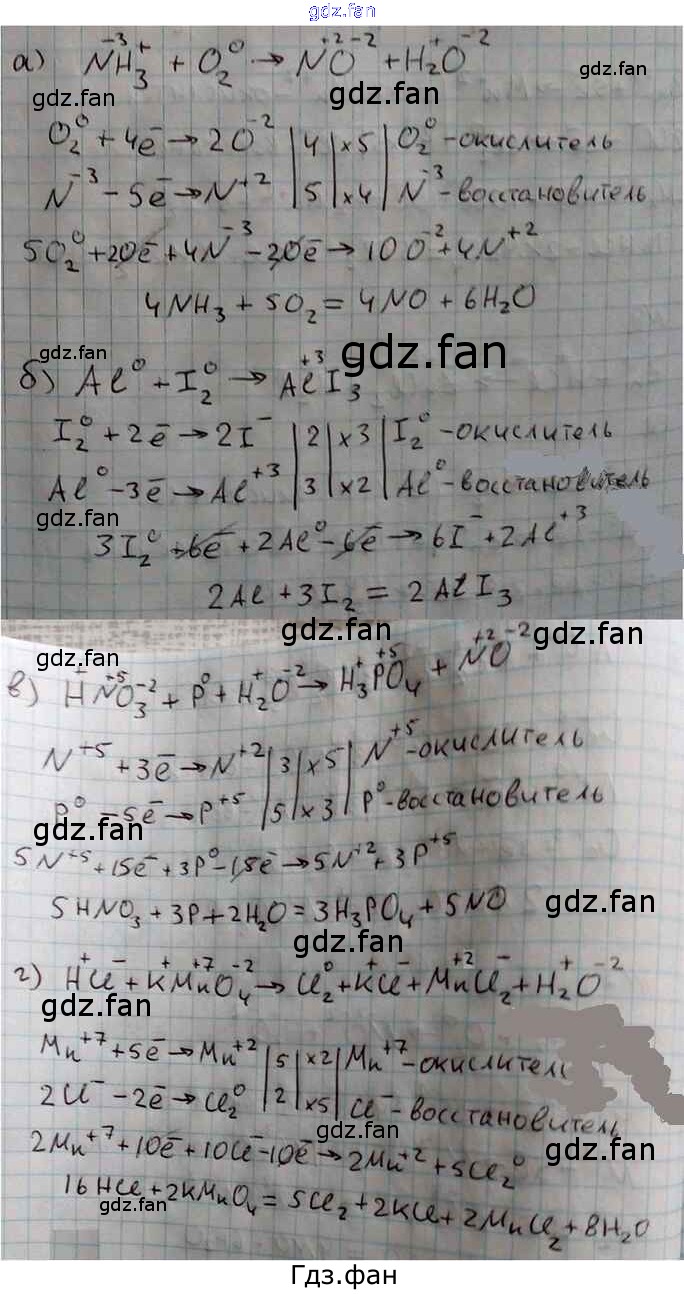 gdz.fan
а) N⁻³H₃⁺ + O₂⁰ → N⁺²O⁻² + H₂⁺O⁻²
gdz.fan gdz.fan gdz.fan
O₂⁰ + 4ē → 2O⁻² | 4 | x5 | O₂⁰ - окислитель
N⁻³ - 5ē → N⁺² | 5 | x4 | N⁻³ - восстановитель
5O₂⁰ + 20ē + 4N⁻³ - 20ē → 10O⁻² + 4N⁺²
4NH₃ + 5O₂ = 4NO + 6H₂O
gdz.fan gdz.fan
б) Al⁰ + I₂⁰ → Al⁺³I₃⁻
I₂⁰ + 2ē → 2I⁻ | 2 | x3 | I₂⁰ - окислитель
Al⁰ - 3ē → Al⁺³ | 3 | x2 | Al⁰ - восстановитель
gdz.fan gdz.fan
3I₂⁰ + 6ē + 2Al⁰ - 6ē → 6I⁻ + 2Al⁺³
2Al + 3I₂ = 2AlI₃
gdz.fan gdz.fan gdz.fan
в) H⁺N⁺⁵O₃⁻² + P⁰ + H₂⁺O⁻² → H₃⁺P⁺⁵O₄ + N⁺²O⁻²
N⁺⁵ + 3ē → N⁺² | 3 | x5 | N⁺⁵ - окислитель
P⁰ - 5ē → P⁺⁵ | 5 | x3 | P⁰ - восстановитель
gdz.fan gdz.fan
5N⁺⁵ + 15ē + 3P⁰ - 15ē → 5N⁺² + 3P⁺⁵
5HNO₃ + 3P + 2H₂O = 3H₃PO₄ + 5NO
gdz.fan gdz.fan
г) H⁺Cl⁻ + K⁺Mn⁺⁷O₄⁻² → Cl₂⁰ + K⁺Cl⁻ + Mn⁺²Cl₂⁻ + H₂⁺O⁻²
Mn⁺⁷ + 5ē → Mn⁺² | 5 | x2 | Mn⁺⁷ - окислитель
2Cl⁻ - 2ē → Cl₂⁰ | 2 | x5 | Cl⁻ - восстановитель
gdz.fan gdz.fan gdz.fan
2Mn⁺⁷ + 10ē + 10Cl⁻ - 10ē → 2Mn⁺² + 5Cl₂⁰
16HCl + 2KMnO₄ = 5Cl₂ + 2KCl + 2MnCl₂ + 8H₂O
gdz.fan gdz.fan
Гдз.фан